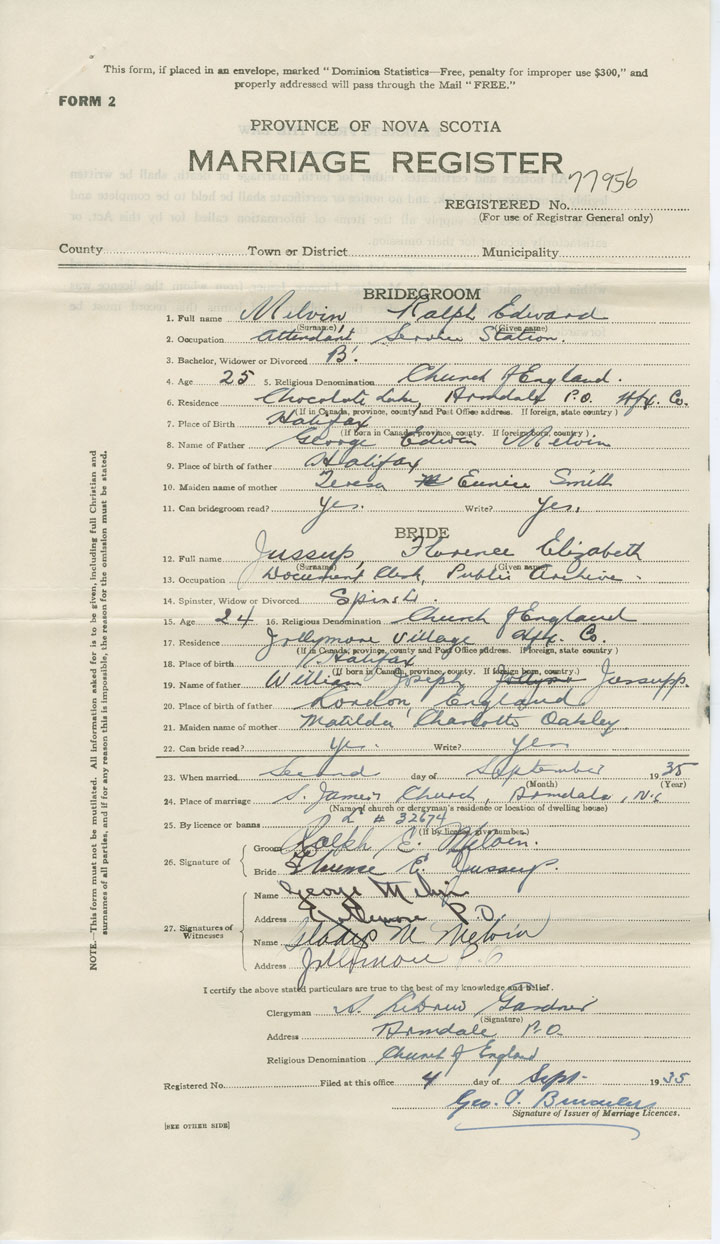 This form, if placed in an envelope, marked "Dominion Statistics—Free, penalty for improper use $300," and
properly addressed will pass through the Mail "FREE."
FORM 2
PROVINCE OF NOVA SCOTIA
MARRIAGE REGISTER
REGISTERED No. 77956
(For use of Registrar General only)
County Town or District Municipality
BRIDEGROOM
1. Full name Melvin Ralph Edward
(Surname) (Given name)
2. Occupation Attendant Service Station.
3. Bachelor, Widower or Divorced B.
4. Age 25 5. Religious Denomination Church of England.
6. Residence Chocolate Lake, Armdale P.O. Hfx. Co.
(If in Canada, province, county and Post Office address. If foreign, state country)
7. Place of Birth Halifax
(If born in Canada, province, county. If foreign born, country)
8. Name of Father George Edwin Melvin
9. Place of birth of father Halifax
10. Maiden name of mother Teresa Eunice Smith
11. Can bridegroom read? Yes. Write? Yes.
BRIDE
12. Full name Jussup, Florence Elizabeth
(Surname) (Given name)
13. Occupation Document Clerk, Public Archive.
14. Spinster, Widow or Divorced Spinst.
15. Age 24 16. Religious Denomination Church of England
17. Residence Jollymore Village Hfx. Co.
(If in Canada, province, county and Post Office address. If foreign, state country)
18. Place of birth Halifax
(If born in Canada, province, county. If foreign born, country.)
19. Name of father William Joseph Jussupp.
20. Place of birth of father London, England
21. Maiden name of mother Matilda Charlotte Oakley
22. Can bride read? Yes. Write? Yes.
23. When married Second day of September 1935
(Month) (Year)
24. Place of marriage S. James Church, Armdale, N.S
(Name of church or clergyman's residence or location of dwelling house)
25. By licence or banns L # 32674
(If by license, give number.)
26. Signature of
Groom Ralph E. Melvin.
Bride Florence E. Jussup.
27. Signatures of Witnesses
Name George Melvin
Address Jollimore P.O.
Name Gladys M Melvin
Address Jollimore
I certify the above stated particulars are true to the best of my knowledge and belief.
Clergyman Gardner
(Signature)
Address Armdale P.O.
Religious Denomination Church of England
Registered No. Filed at this office 4 day of Sept. 1935
Geo.
Signature of Issuer of Marriage Licences.
[SEE OTHER SIDE]
NOTE.—This form must not be mutilated. All information asked for is to be given, including full Christian and
surnames of all parties, and if for any reason this is impossible, the reason for the omission must be stated.